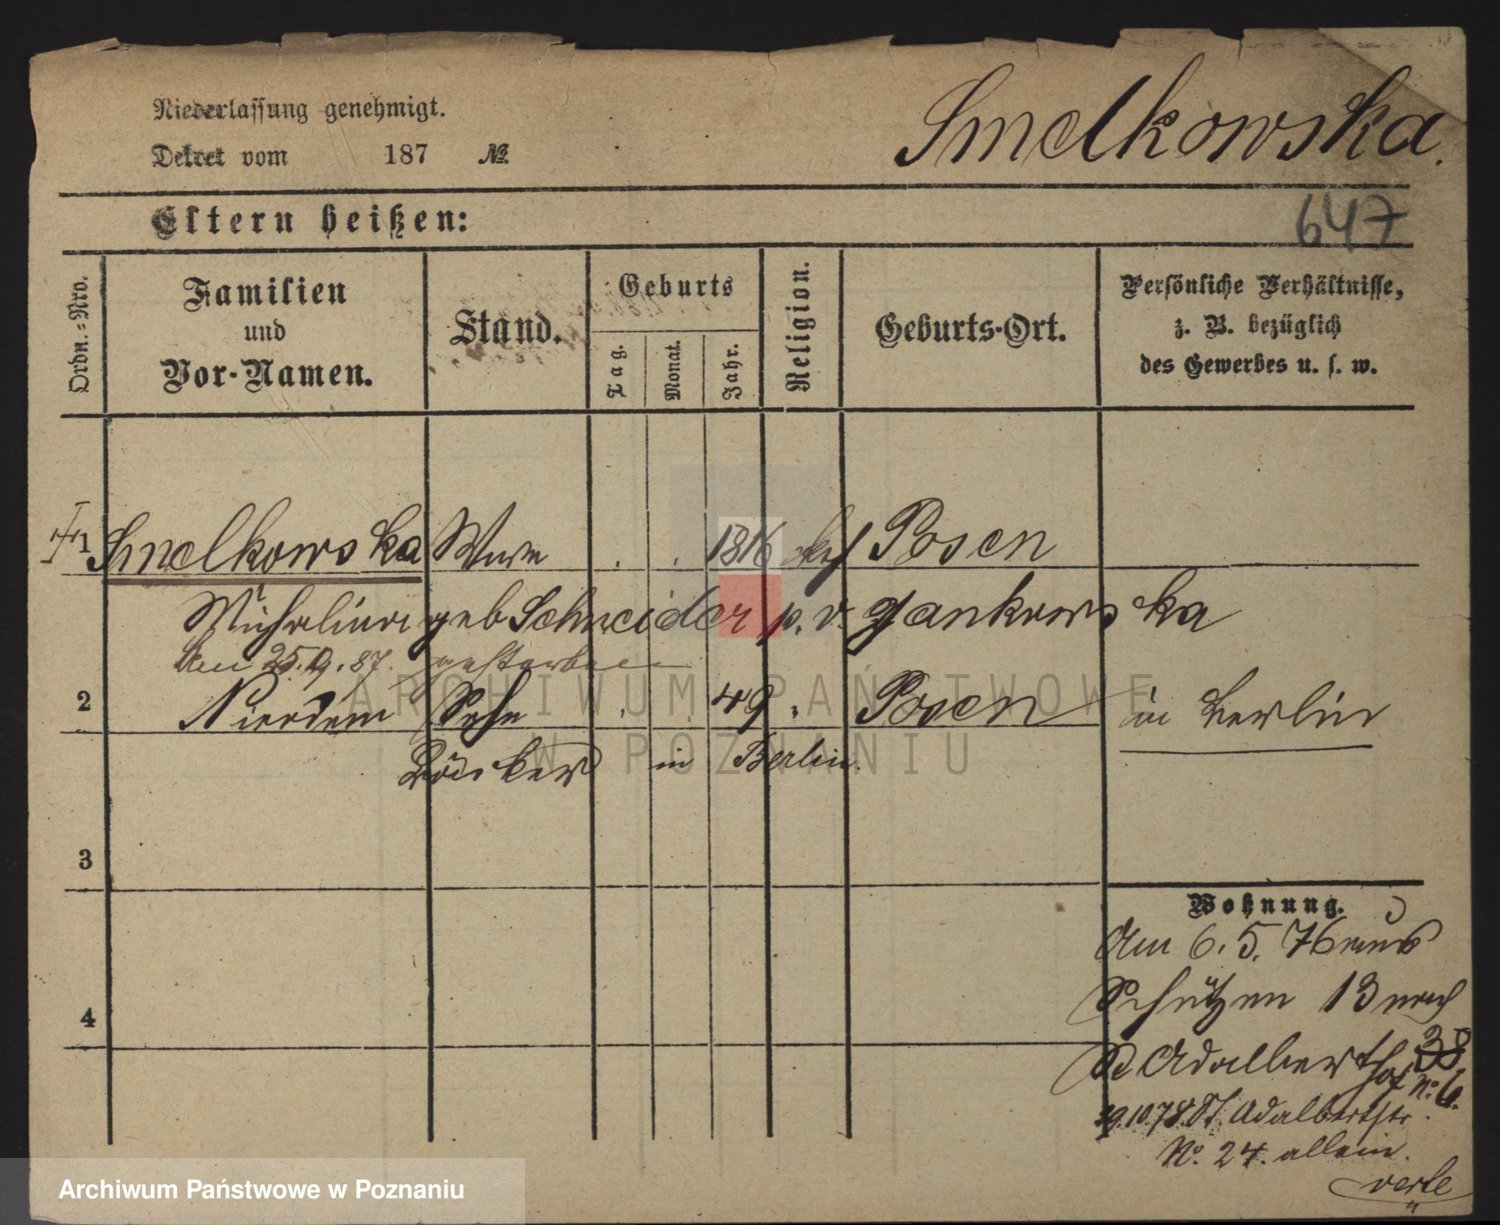 Niederlassung genehmigt.
Smelkowska.
Dekret vom 187 №
Eltern heißen:
647
Ordn.=Nro.
Familien und Vor-Namen.
Stand.
Geburts
Tag.
Monat.
Jahr.
Religion.
Geburts-Ort.
Persönliche Verhältnisse,
z. B. bezüglich
des Gewerbes u. s. w.
1 Smelkowska Wwe 1816 kath Posen
Michalina geb Schneider p. v. Jankowska
am 25.9.87. gestorben
2 Sohn 49. Posen in Berlin
in Berlin.
3
Wohnung.
Am 6. 5. 76 aus
Schützen 13 nach
4
St Adalbert 38
hof No. 6.
29.10 78 St. Adalbertstr.
No. 24. allein.
ARCHIWUM PAŃSTWOWE
W POZNANIU
Archiwum Państwowe w Poznaniu